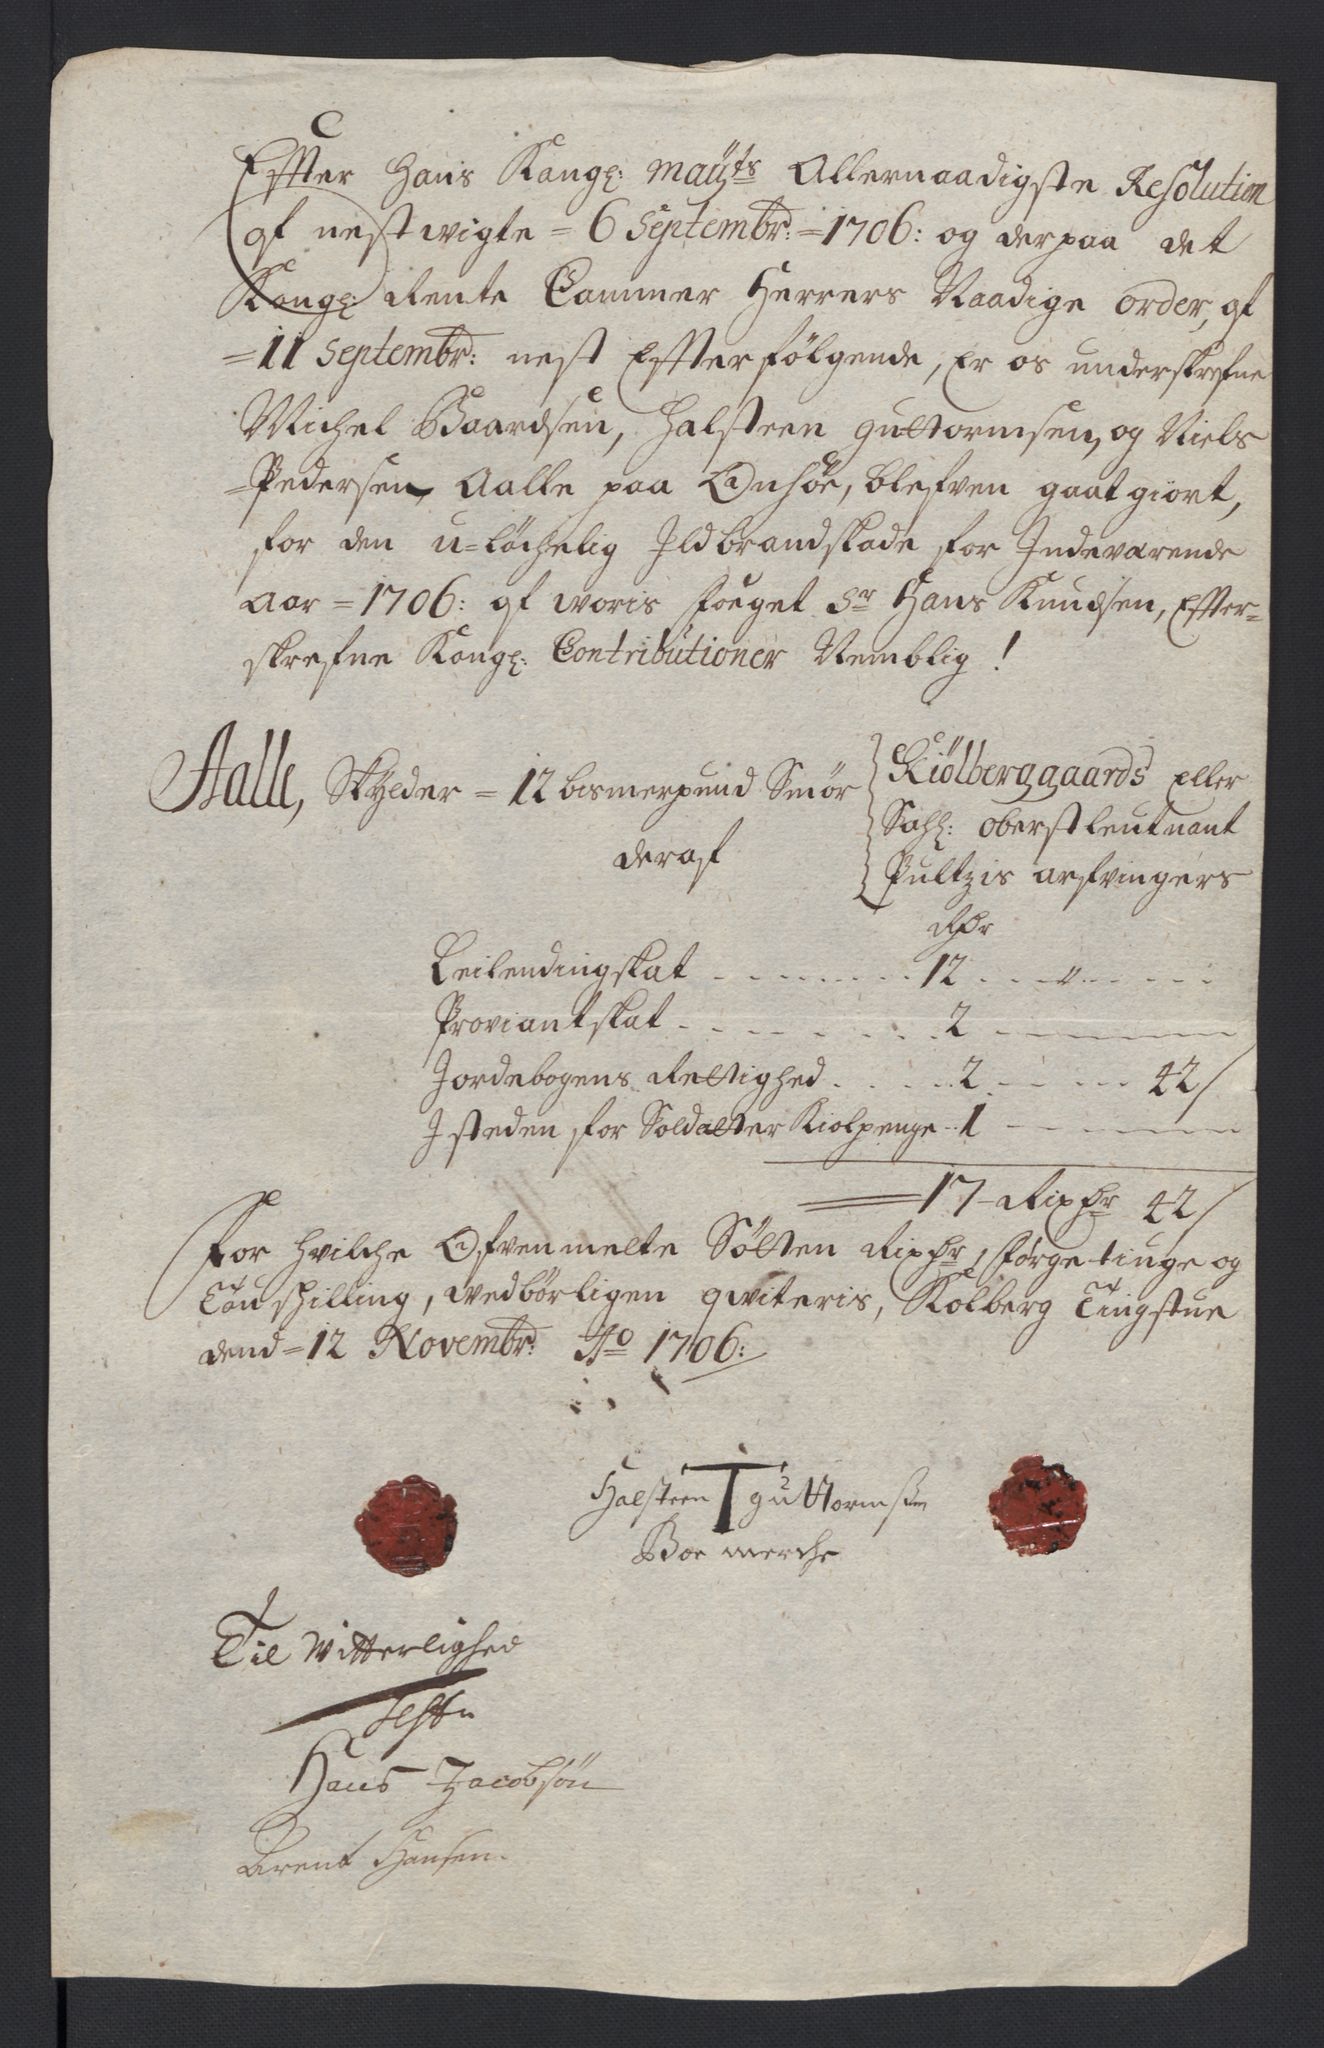 Effter Hans Kongl: Mayts Allernaadigste Resolution
af nestwigte = 6 Septembr: = 1706: og derpaa det
Kongl: Rente Cammer Herrers Naadige order, af
= 11 Septembr: nest Effterfølgende, Er os underskrefne
Michel Baardsen, Halsteen Guttormsen, og Niels
Pedersen, Aalle paa Onsøe, blefven gaat giort,
for den u-löchelig Ildbrandskade for Indeværende
Aar = 1706: af woris fouget Sr Hans Knudsen, Effter-
skrefne Kongl: Contributioner Nemblig!
Aalle, Skylder = 12 bismerpund Smör
Kiölberggaards eller
Sahl: oberstleutnant
Pultzis arfvingers
deraf
Rdr
Leilendingskat 12 "
Proviantskat 2
Jordebogens Rettighed 2 42/
I steden for Soldatter Kiolpenge 1
17 Rixdr 42/
For hvilche Ofvenmelte Sötten Rixdr, förgetiuge og
Tou schilling, wedbørligen qviteris, Kolberg Tingstue
dend = 12 Novembr: Ao 1706:
Halsteen T Guttormsen
Boe merche
Til Witterlighed
Testn
Hans Jacobsön
Arent Hansen.